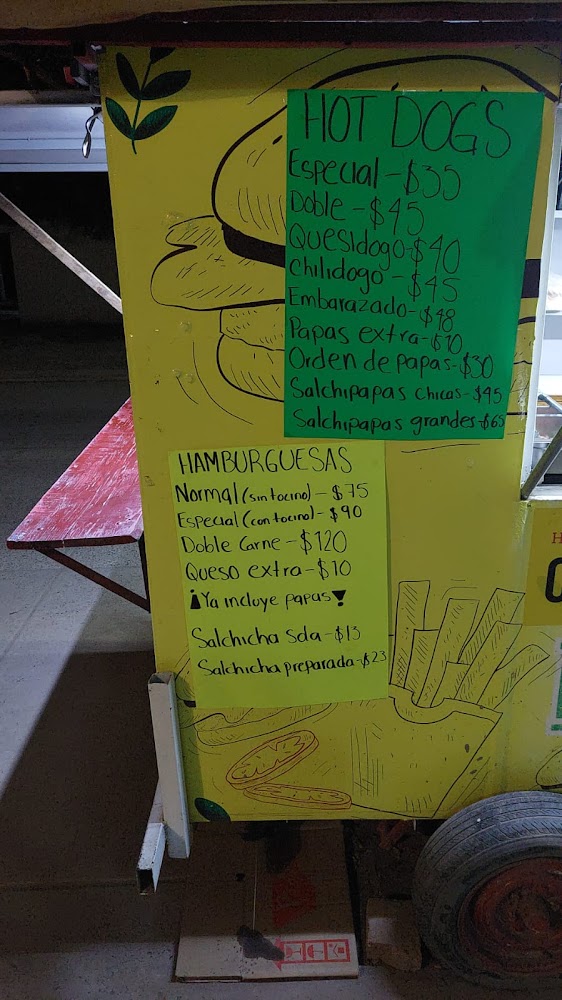 HOT DOGS
Especial - $35
Doble - $45
Quesidogo - $40
Chilidogo - $45
Embarazado - $48
Papas extra - $10
Orden de papas - $30
Salchipapas chicas - $45
Salchipapas grandes - $65
HAMBURGUESAS
Normal (sin tocino) - $75
Especial (con tocino) - $90
Doble Carne - $120
Queso extra - $10
¡Ya incluye papas!
Salchicha Sola - $13
Salchicha preparada - $23